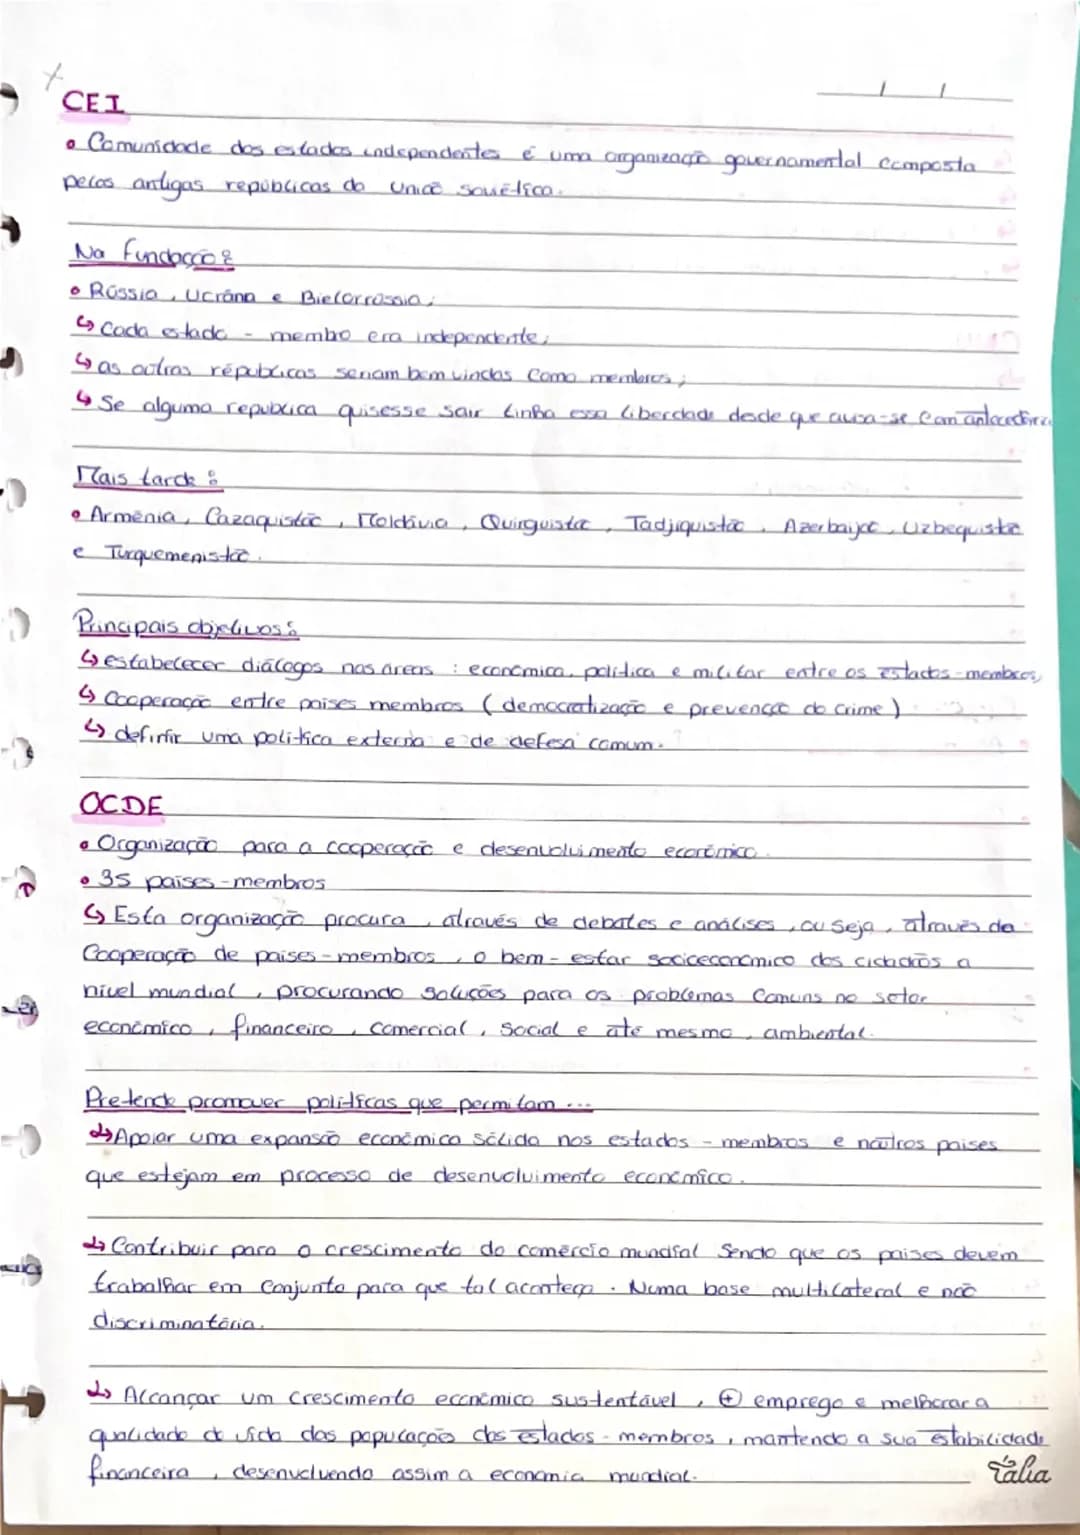 CEI
• Comunidade dos estados independentes é uma organização governamental composta
pelas antigas repúblicas da União Soviética.
Na Fundação:
• Rússia, Ucrâna e Bielorrússia;
↳ Cada estado - membo era independente;
↳ as outras républicas seriam bem vindas como membros;
↳ Se alguma republica quisesse sair tinha essa liberdade desde que avisa-se com
Mais tarde:
• Arménia, Cazaquistão, Moldávia, Quirguistão, Tadjiquistão, Azerbaijão, Uzbequistão
e Turquemenistão.
Principais objetivos:
↳ estabelecer diálogos nas áreas: económica, política e militar entre os estados-membros,
↳ Cooperação entre países membros (democratização e prevenção do crime)
↳ definir uma política externa e de defesa comum.
OCDE
• Organização para a cooperação e desenvolvimento económico.
• 35 países-membros
↳ Esta organização procura, através de debates e análises, ou seja, através da
Cooperação de países-membros, o bem-estar socioeconómico dos cidadãos a
nível mundial, procurando soluções para os problemas comuns no setor
económico, financeiro, comercial, social e até mesmo, ambiental.
Pretende promover políticas que permitam ...
↳ Apoiar uma expansão económica sólida nos estados - membros e noutros países
que estejam em processo de desenvolvimento económico.
↳ Contribuir para o crescimento do comércio mundial sendo que os países devem
trabalhar em conjunto para que tal aconteça. Numa base multilateral e não
discriminatória.
↳ Alcançar um crescimento económico sustentável, ⊕ emprego e melhorar a
qualidade de vida das populações dos estados - membros, mantendo a sua estabilidade
financeira, desenvolvendo assim a economia mundial.
Tália